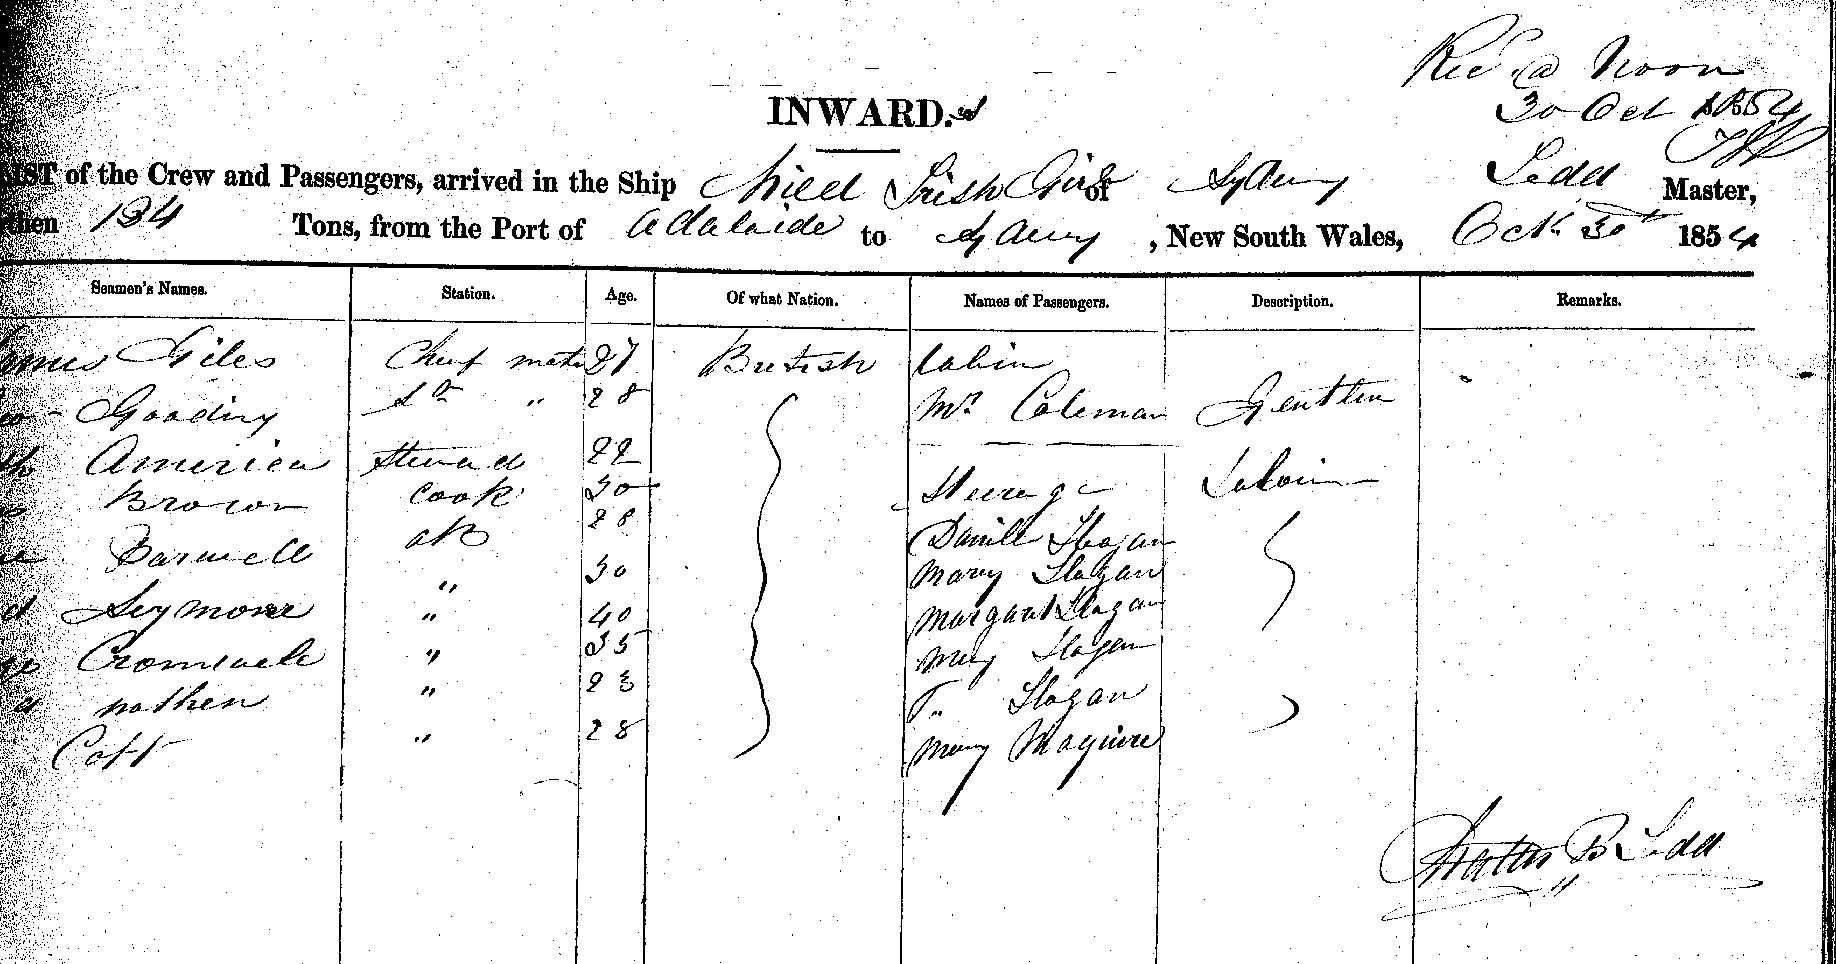 Recd @ Noon
30 Oct 1854
INWARD.
LIST of the Crew and Passengers, arrived in the Ship Wild Irish Girl of Sydney Ledd Master,
then 134 Tons, from the Port of Adelaide to Sydney, New South Wales, Oct 30th 1854
Seamen's Names. Station. Age. Of what Nation. Names of Passengers. Description. Remarks.
Giles Chief mate 27 British Cabin
Gooding 2d " 28 Mr Coleman Gentln
America Steward 22
Brown Cook 30 Steerage
AB 28 Daniell Slogan
Barwell " 30 Mary Slogan
Seymore " 40 Margaret Slogan
" 35 Slogan
nathen " 23 T.. Slogan
Catt " 28 Mary Maguire
B Ledd